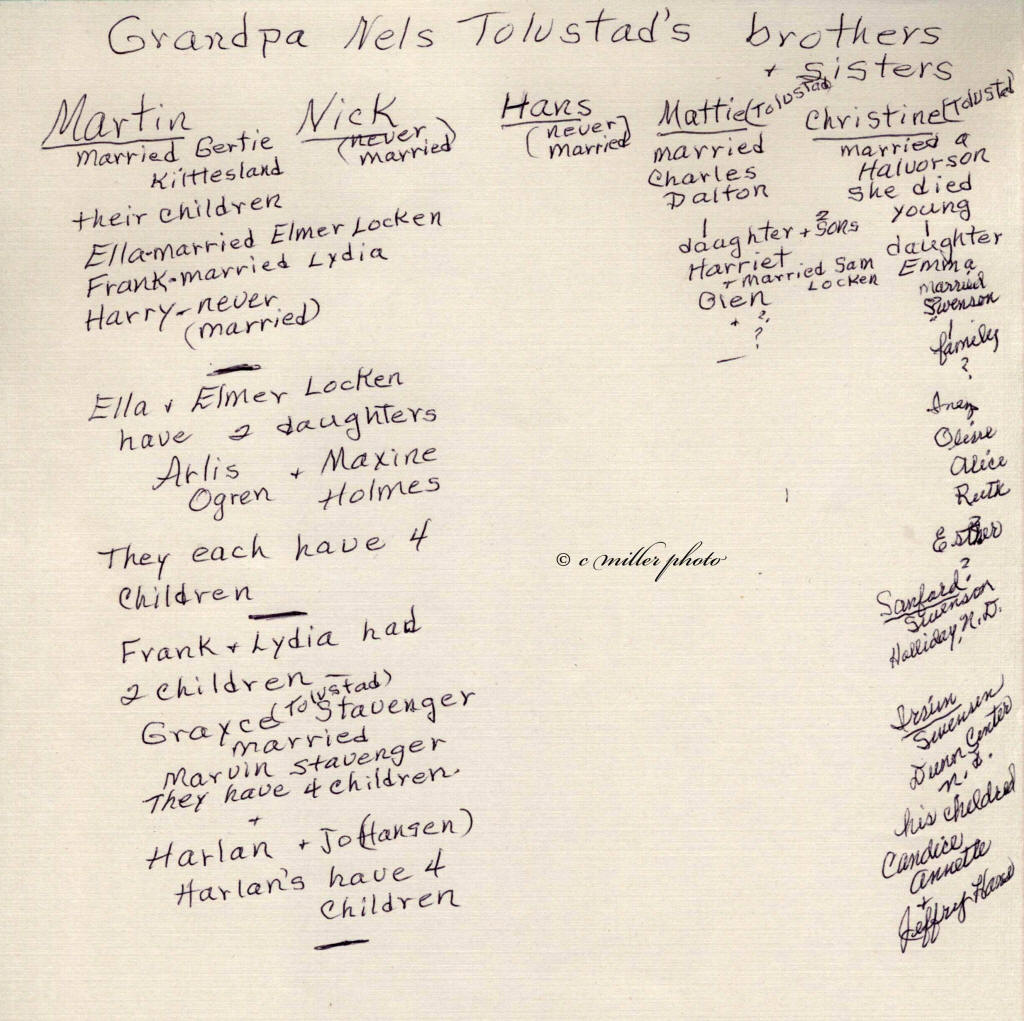 Grandpa Nels Tolustad's brothers
+ sisters
Martin
married Gertie
Kilttesland
their children
Ella-married Elmer Locken
Frank-married Lydia
Harry-never
(married)
Ella + Elmer Locken
have 2 daughters
Arlis + Maxine
Ogren Holmes
They each have 4
children
Frank + Lydia had
2 children
Grayce (Tolustad) Stavenger
married
Marvin Stavenger
They have 4 children.
+
Harlan + Jo (Hansen)
Harlan's have 4
children
Nick
(never
married)
Hans
(never
married)
Mattie (Tolustad)
married
Charles
Dalton
1 2
daughter + sons
Harriet
+ married Sam
Locken
Olen
+ ?
?
Christine (Tolusted)
married a
Halvorson
she died
young
1
daughter
Emma
married
Swenson
family
?
Inez
Olive
Alice
Ruth
Esther
?
Sanford?
Swenson
Holliday, N.D.
Swenson
Dunn Center
N.D.
his children
Candice
Annette
+
Jeffry
© c miller photo